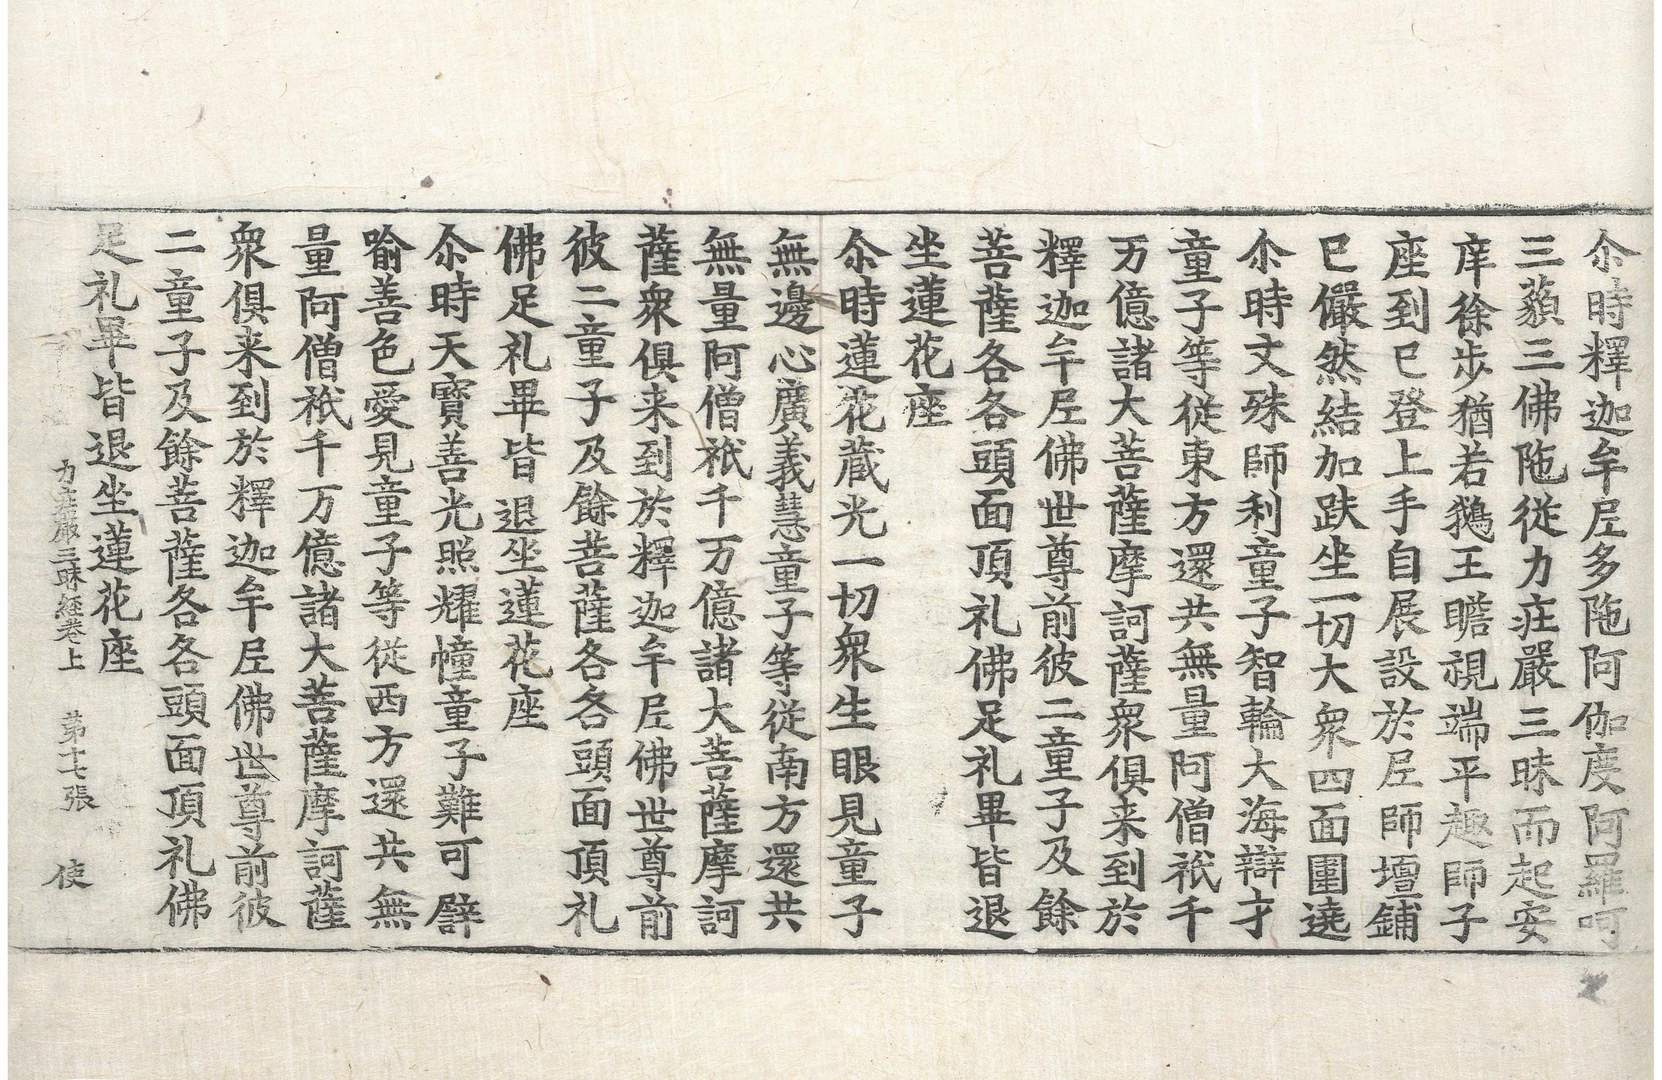 尒時釋迦牟𡰱多陁阿伽度阿羅呵
三藐三佛陁從力庄嚴三昧而起安
庠徐步猶若鵝王瞻視端平趣師子
座到已登上手自展設於𡰱師壇鋪
已儼然結加趺坐一切大衆四面圍遶
尒時文殊師利童子智輪大海辯才
童子等從東方還共無量阿僧祇千
万億諸大菩薩摩訶薩衆俱来到於
釋迦牟𡰱佛世尊前彼二童子及餘
菩薩各各頭面頂礼佛足礼畢皆退
坐蓮花座
尒時蓮花藏光一切衆生眼見童子
無邊心廣義慧童子等從南方還共
無量阿僧祇千万億諸大菩薩摩訶
薩衆俱来到於釋迦牟𡰱佛世尊前
彼二童子及餘菩薩各各頭面頂礼
佛足礼畢皆退坐蓮花座
尒時天寶善光照耀幢童子難可譬
喻善色愛見童子等從西方還共無
量阿僧祇千万億諸大菩薩摩訶薩
衆俱来到於釋迦牟𡰱佛世尊前彼
二童子及餘菩薩各各頭面頂礼佛
足礼畢皆退坐蓮花座
力庄嚴三昧經卷上 第十七張 使